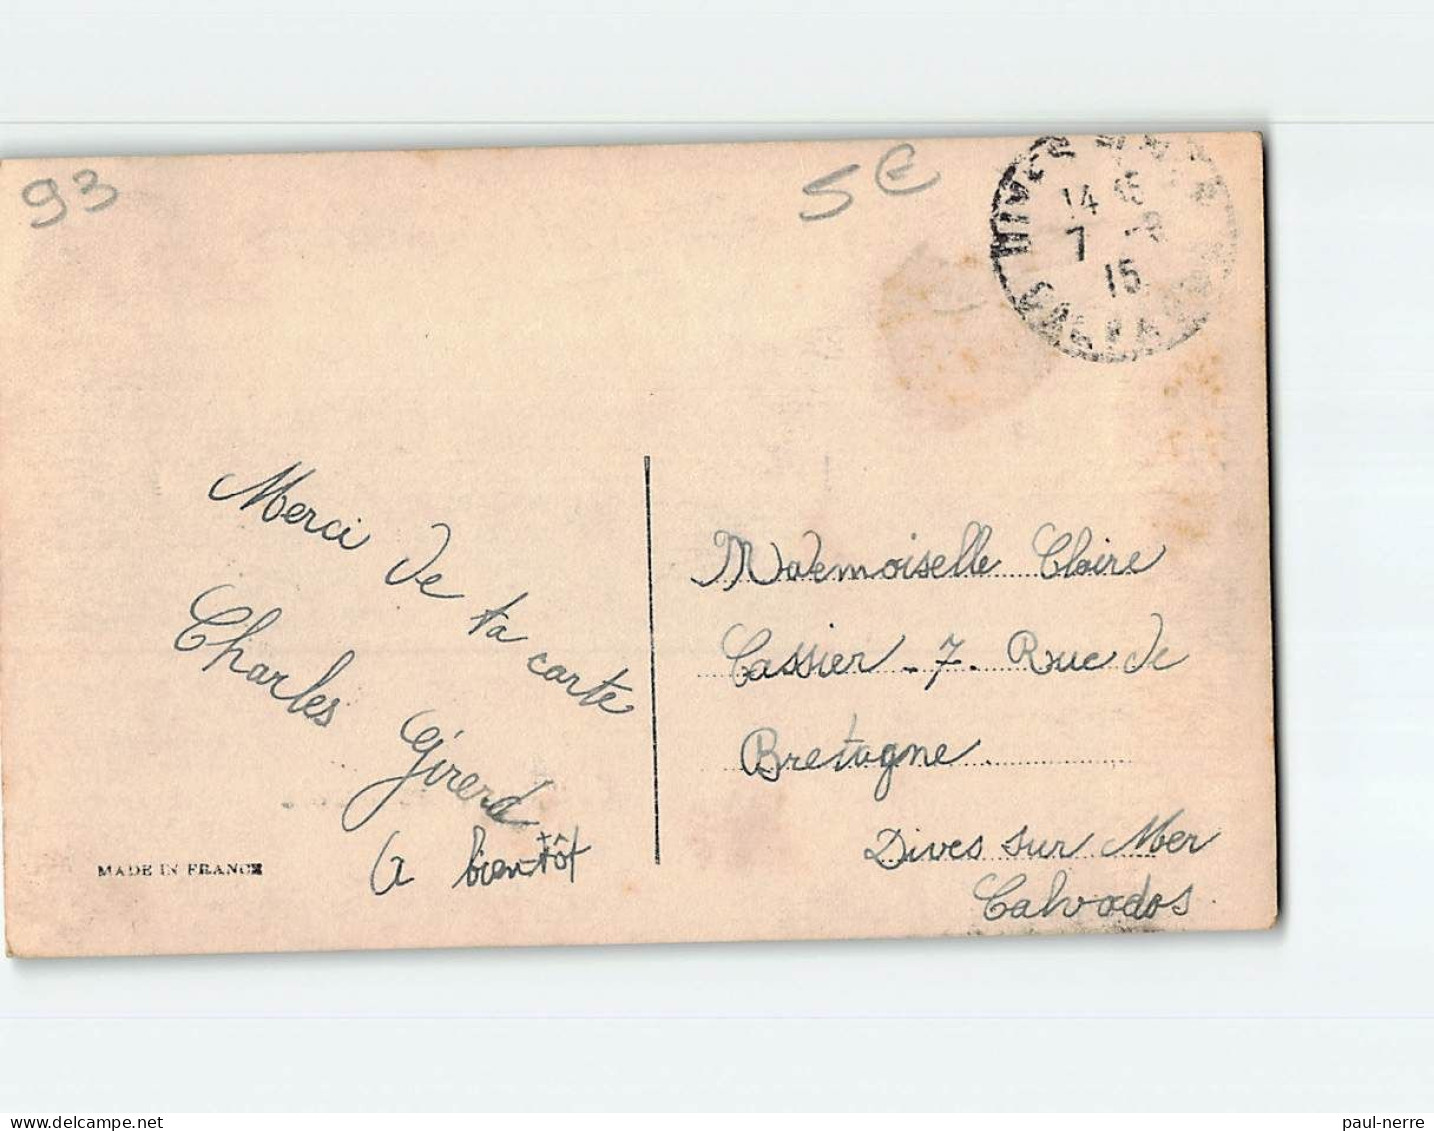 93
5€
14 15
7 -8
15
CALVADOS
Merci de ta carte
Charles Girard
A bientôt
MADE IN FRANCE
Mademoiselle Claire
Cassier - 7. Rue de
Bretagne
Dives sur Mer
Calvados
paul-nerre